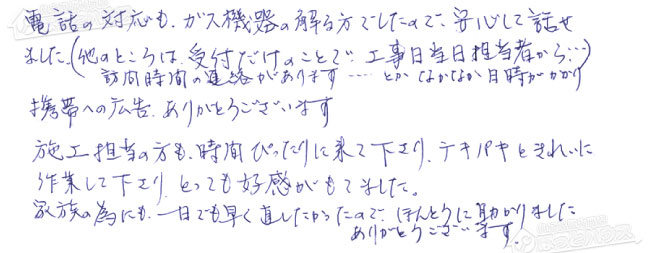 電話の対応も、ガス機器の解る方でしたので、安心して話せ
ました。(他のところは、受付だけのことで、工事日当日担当者から…)
訪問時間の連絡があります…… とか なかなか日時がかかり
携帯への広告、ありがとうございます
施工担当の方も、時間ぴったりに来て下さり、テキパキときれいに
作業して下さり、とっても好感がもてました。
家族の為にも、一日でも早く直したかったので、ほんとうに助かりました
ありがとうございます。